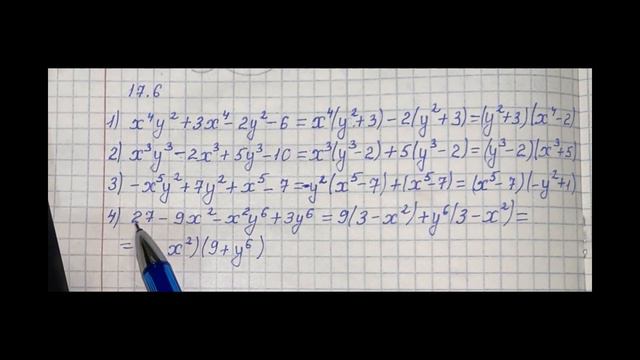 17.6
1) x⁴y² + 3x⁴ - 2y² - 6 = x⁴(y² + 3) - 2(y² + 3) = (y² + 3)(x⁴ - 2)
2) x³y³ - 2x³ + 5y³ - 10 = x³(y³ - 2) + 5(y³ - 2) = (y³ - 2)(x³ + 5)
3) - x⁵y² + 7y² + x⁵ - 7 = -y²(x⁵ - 7) + (x⁵ - 7) = (x⁵ - 7)(-y² + 1)
4) 27 - 9x² - x²y⁶ + 3y⁶ = 9(3 - x²) + y⁶(3 - x²) =
= x²)(9 + y⁶)